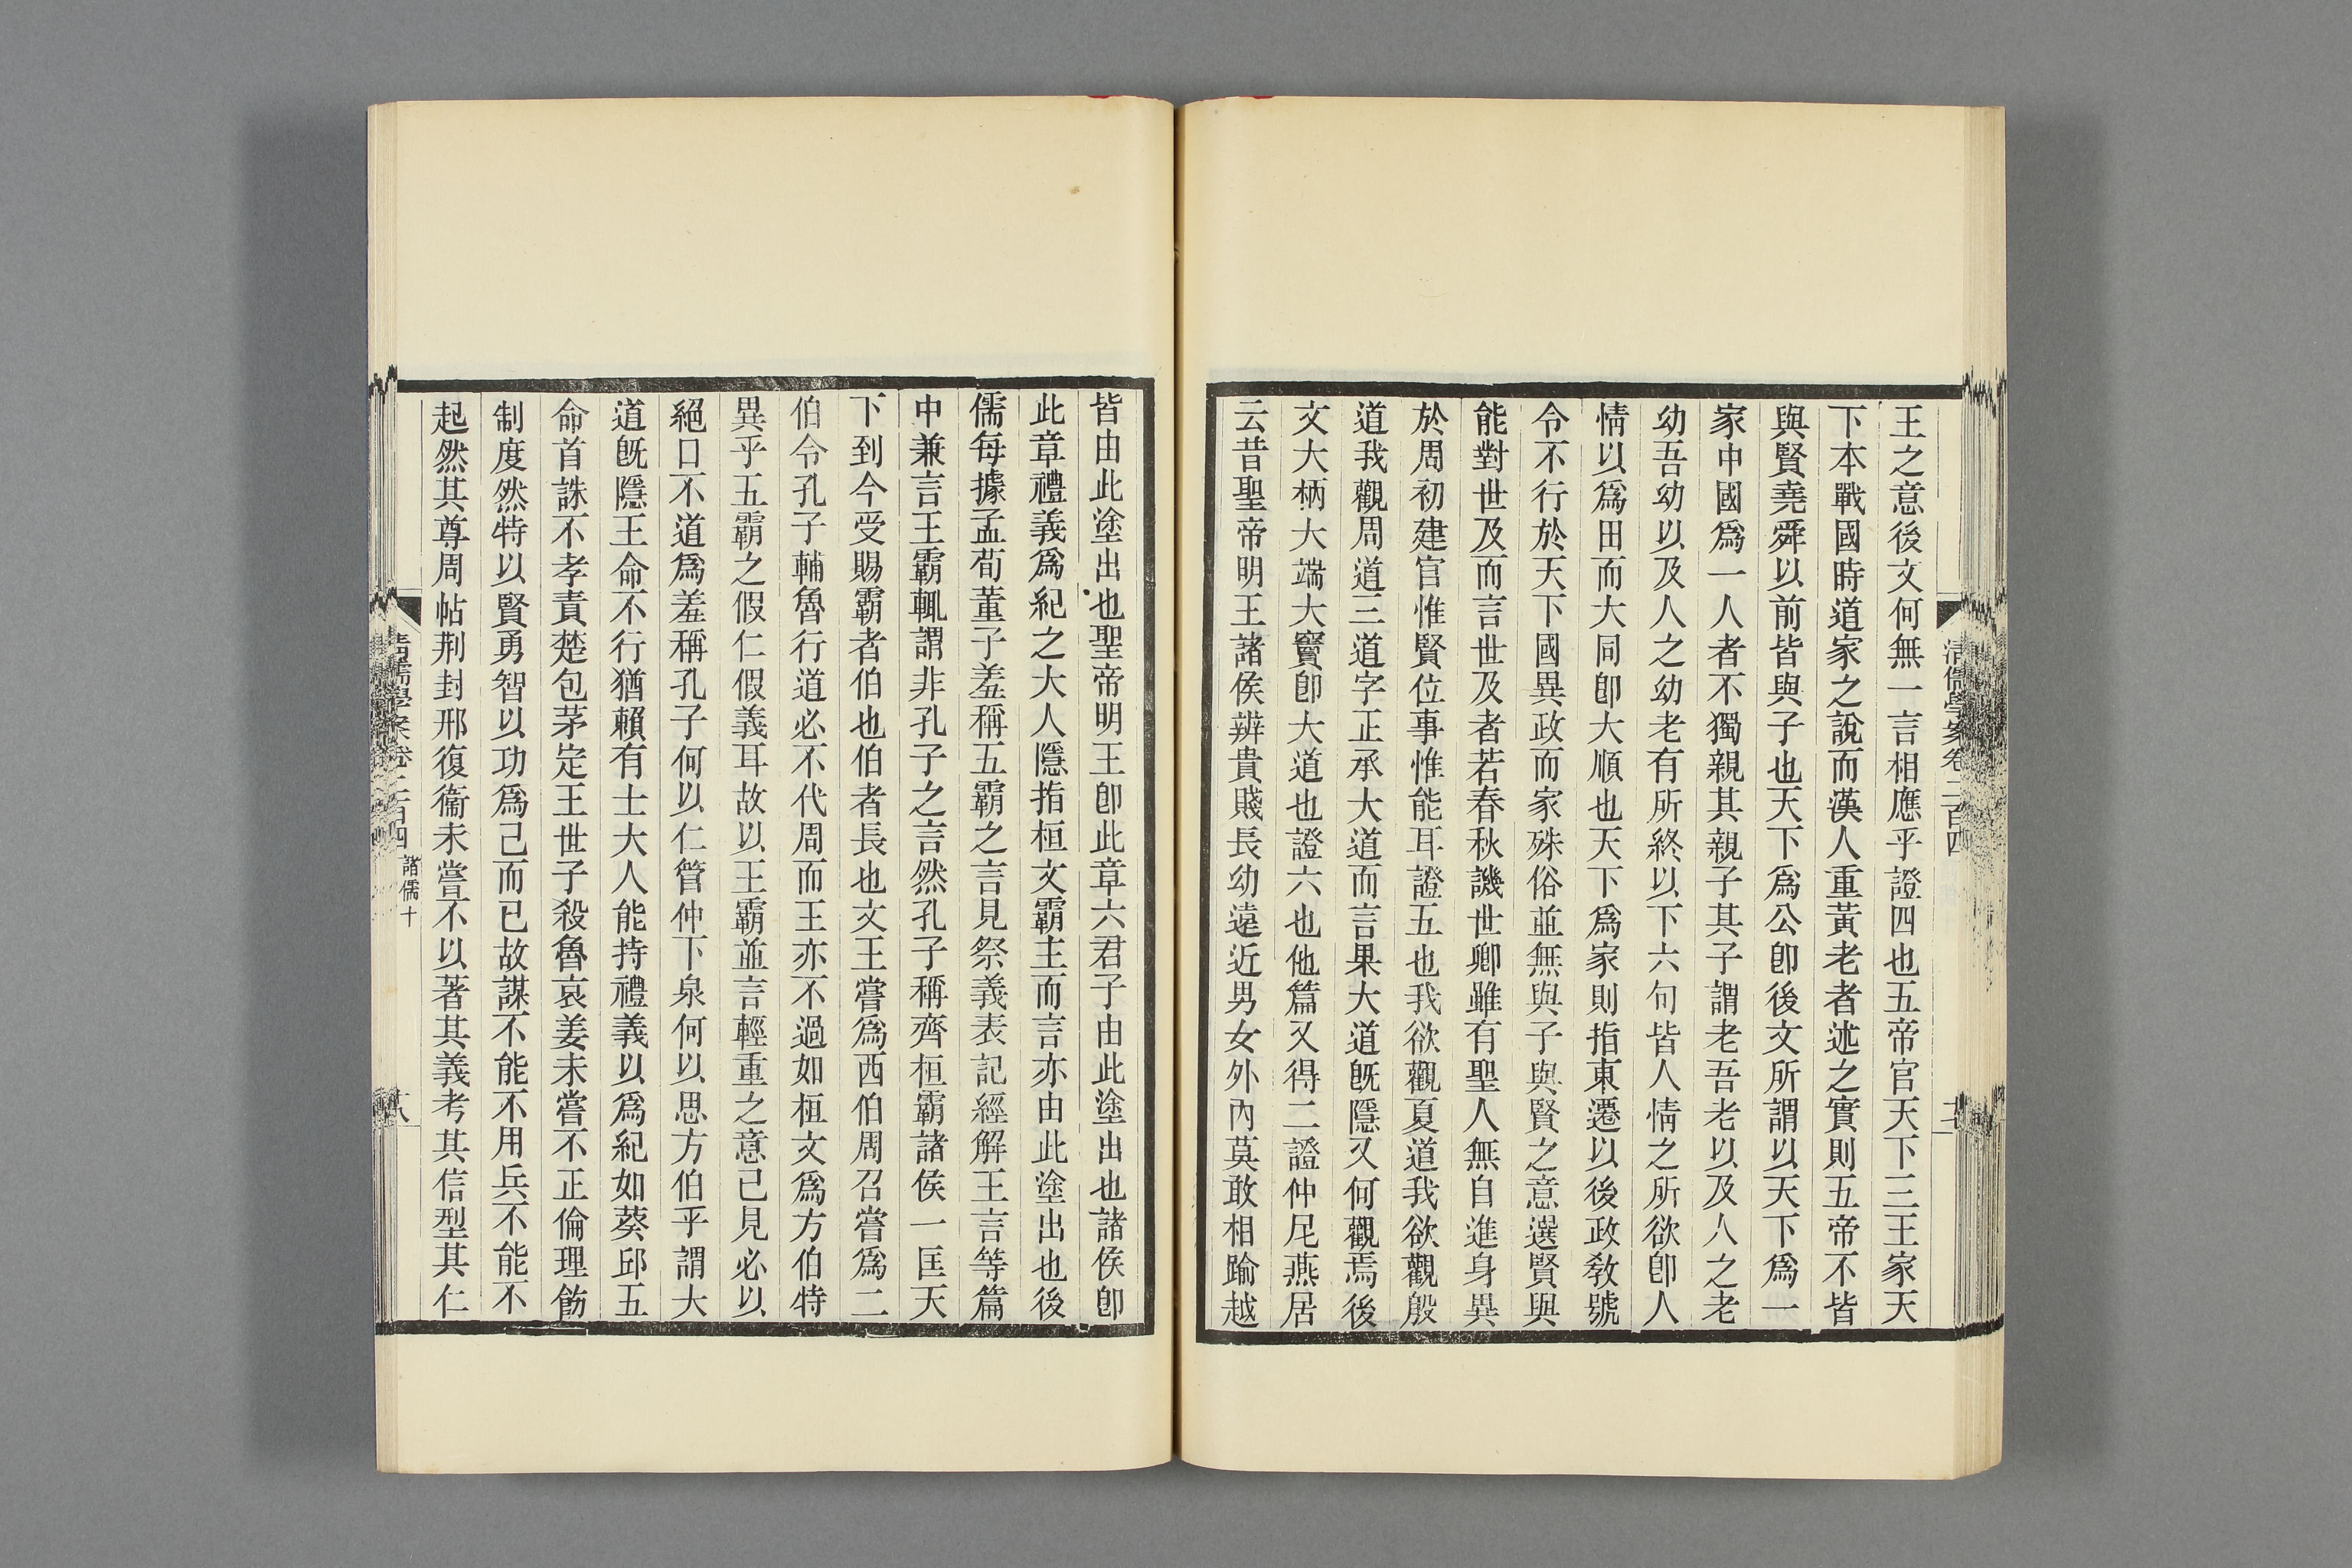 清儒學案卷二百四
王之意後文何無一言相應乎證四也五帝官天下三王家天
下本戰國時道家之說而漢人重黃老者述之實則五帝不皆
與賢堯舜以前皆與子也天下爲公卽後文所謂以天下爲一
家中國爲一人者不獨親其親子其子謂老吾老以及人之老
幼吾幼以及人之幼老有所終以下六句皆人情之所欲卽人
情以爲田而大同卽大順也天下爲家則指東遷以後政敎號
令不行於天下國異政而家殊俗並無與子與賢之意選賢與
能對世及而言世及者若春秋譏世卿雖有聖人無自進身異
於周初建官惟賢位事惟能耳證五也我欲觀夏道我欲觀殷
道我觀周道三道字正承大道而言果大道旣隱又何觀焉後
文大柄大端大竇卽大道也證六也他篇又得二證仲尼燕居
云昔聖帝明王諸侯辨貴賤長幼遠近男女外內莫敢相踰越
皆由此塗出也聖帝明王卽此章六君子由此塗出也諸侯卽
此章禮義爲紀之大人隱指桓文霸主而言亦由此塗出也後
儒每據孟荀董子羞稱五霸之言見祭義表記經解王言等篇
中兼言王霸輒謂非孔子之言然孔子稱齊桓霸諸侯一匡天
下到今受賜霸者伯也伯者長也文王嘗爲西伯周召嘗爲二
伯令孔子輔魯行道必不代周而王亦不過如桓文爲方伯特
異乎五霸之假仁假義耳故以王霸並言輕重之意已見必以
絕口不道爲羞稱孔子何以仁管仲下泉何以思方伯乎謂大
道旣隱王命不行猶賴有士大人能持禮義以爲紀如葵邱五
命首誅不孝責楚包茅定王世子殺魯哀姜未嘗不正倫理飭
制度然特以賢勇智以功爲己而已故謀不能不用兵不能不
起然其尊周帖荆封邢復衞未嘗不以著其義考其信型其仁
諸儒十